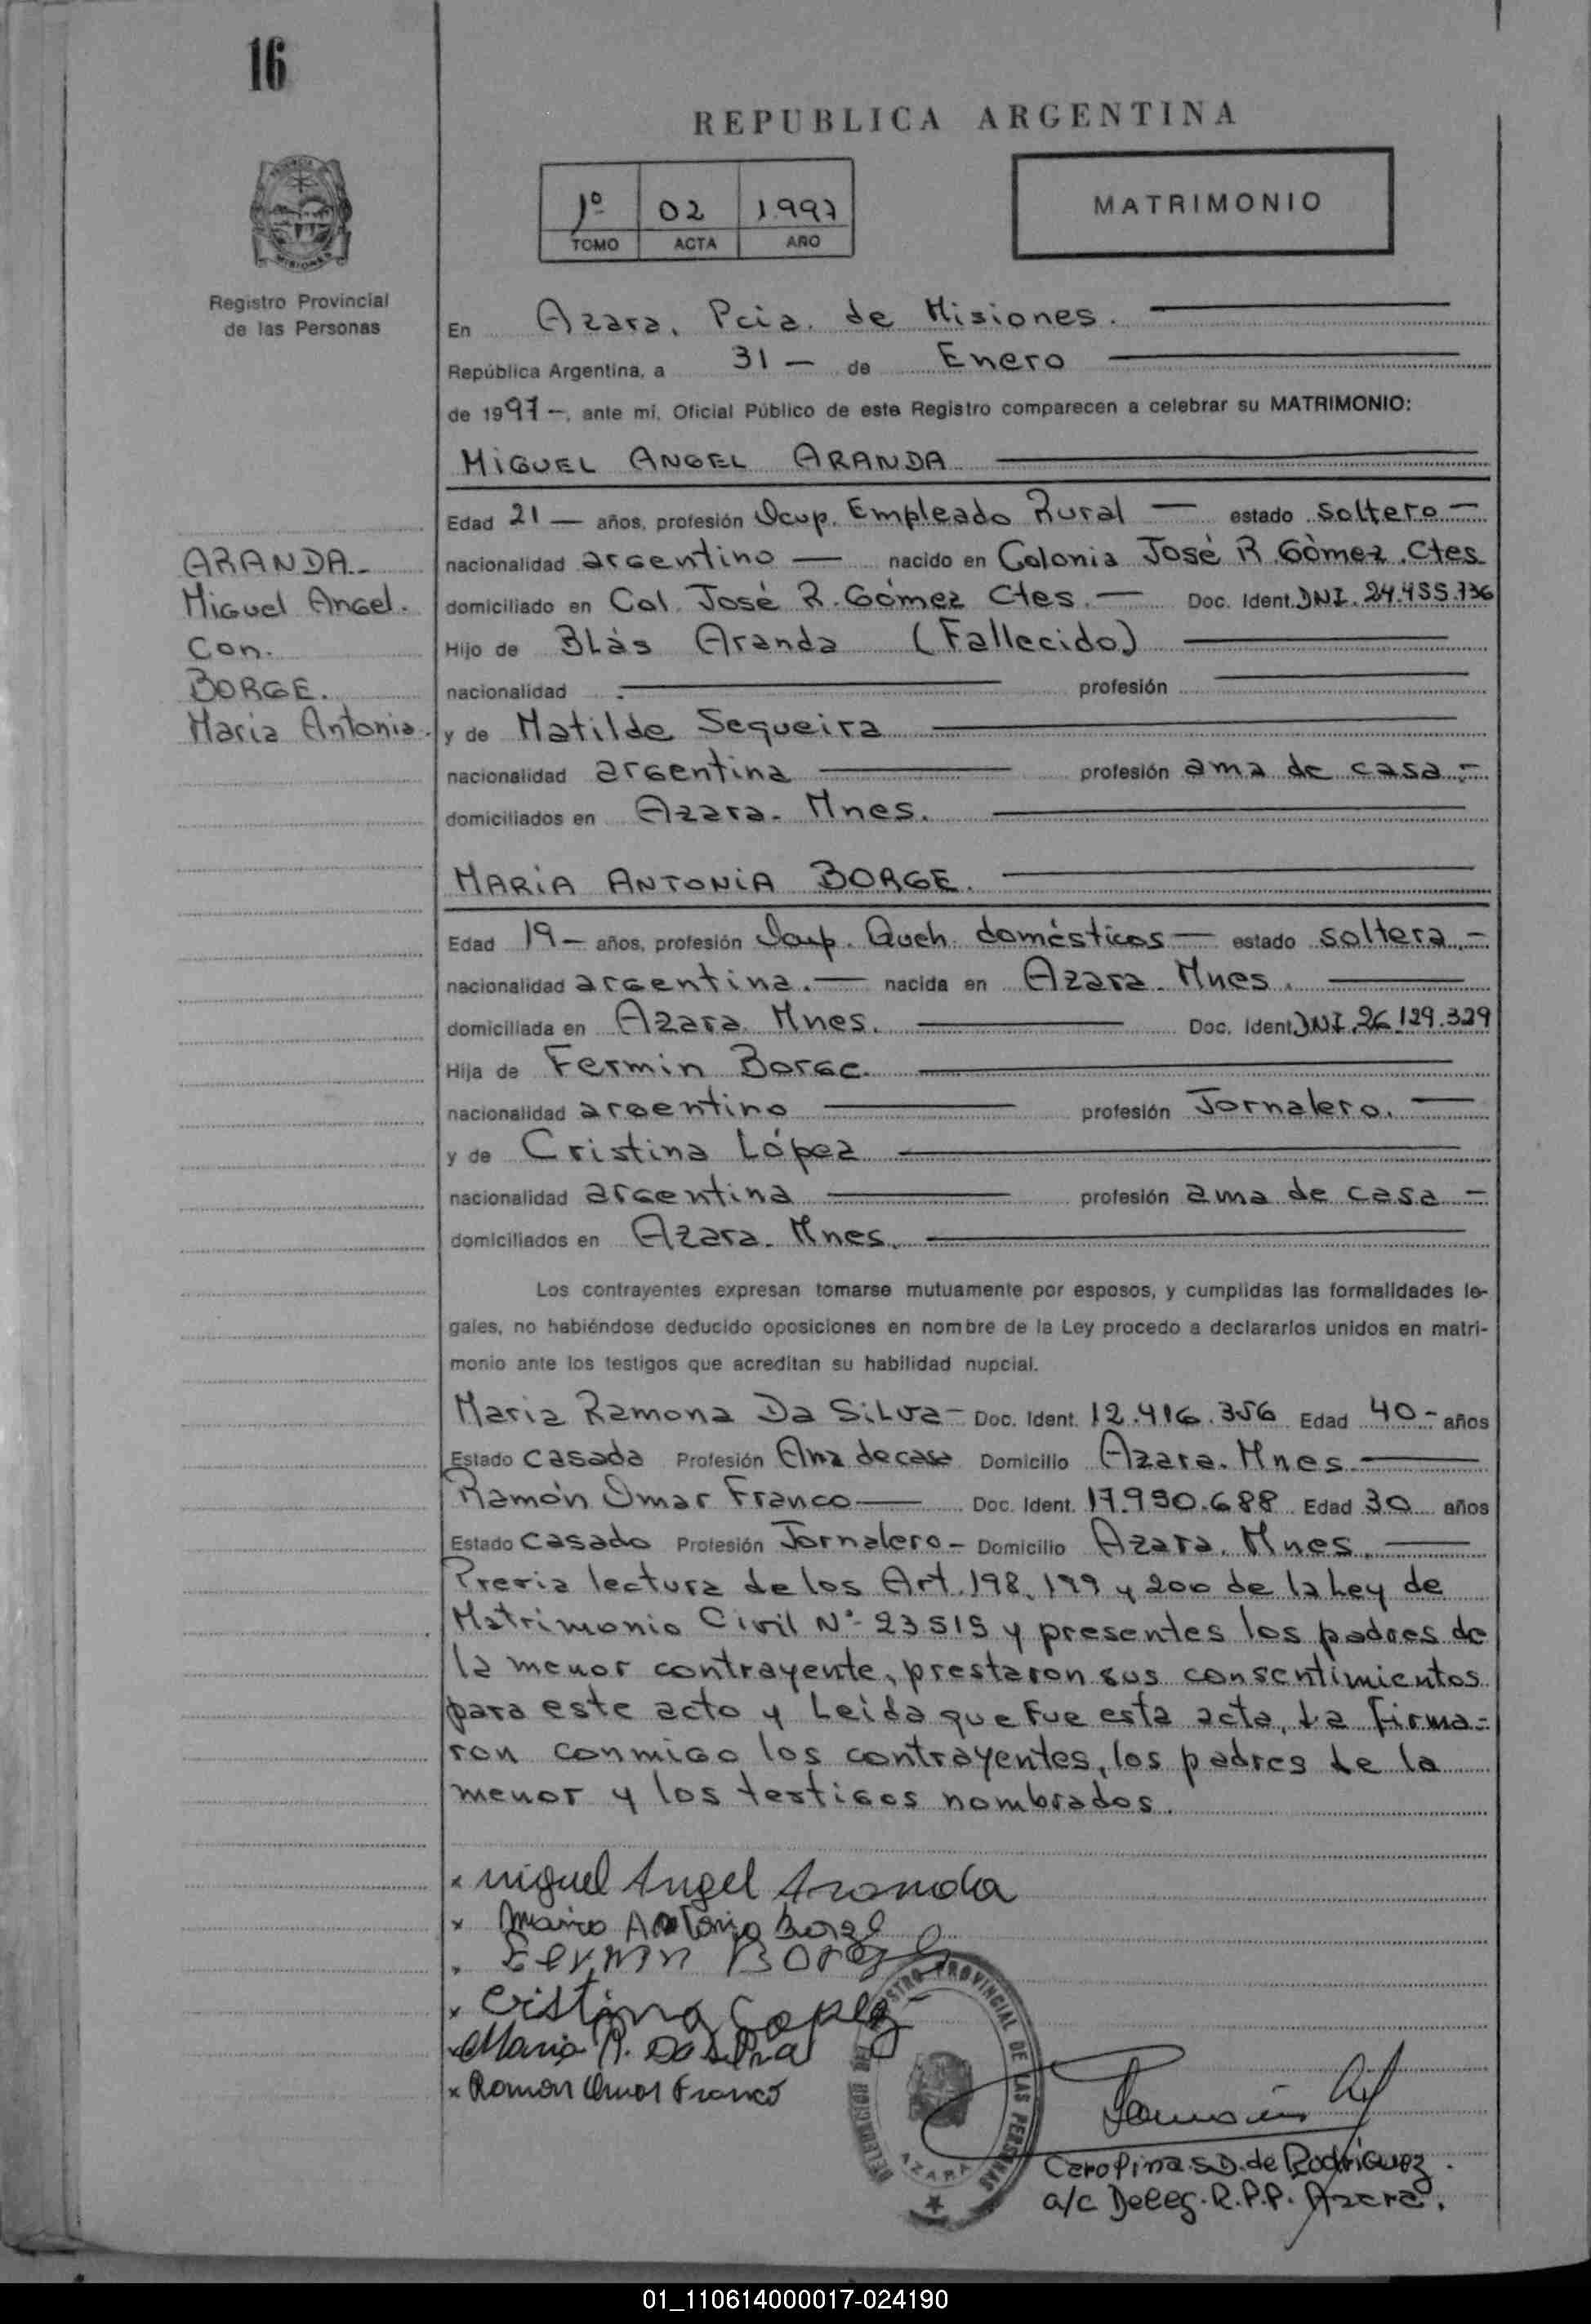 16
REPUBLICA ARGENTINA
1º 02 1.997
TOMO ACTA AÑO
MATRIMONIO
Registro Provincial
de las Personas
En Azara. Pcia. de Misiones.
República Argentina, a 31 — de Enero
de 1997 -, ante mí, Oficial Público de este Registro comparecen a celebrar su MATRIMONIO:
MIGUEL ANGEL ARANDA
Edad 21 — años, profesión Ocup. Empleado Rural — estado soltero -
nacionalidad argentino — nacido en Colonia José R. Gómez. Ctes
domiciliado en Col. José R. Gómez Ctes. — Doc. Ident. DNI. 24.455.736
Hijo de Blás Aranda (Fallecido)
nacionalidad profesión
y de Matilde Sequeira
nacionalidad argentina profesión ama de casa -
domiciliados en Azara. Mnes.
ARANDA.
Miguel Angel.
Con.
BORGE.
Maria Antonia.
MARIA ANTONIA BORGE.
Edad 19 - años, profesión Ocup. Queh. domésticos — estado soltera -
nacionalidad argentina. — nacida en Azara. Mnes.
domiciliada en Azara. Mnes. Doc. Ident. DNI. 26.129.329
Hija de Fermin Borge.
nacionalidad argentino profesión Jornalero.
y de Cristina López
nacionalidad argentina profesión ama de casa -
domiciliados en Azara. Mnes.
Los contrayentes expresan tomarse mutuamente por esposos, y cumplidas las formalidades le-
gales, no habiéndose deducido oposiciones en nombre de la Ley procedo a declararlos unidos en matri-
monio ante los testigos que acreditan su habilidad nupcial.
Maria Ramona Da Silva - Doc. Ident. 12.416.356 Edad 40 - años
Estado casada Profesión Ama de casa Domicilio Azara. Mnes.
Ramón Omar Franco — Doc. Ident. 17.990.688 Edad 30 años
Estado casado Profesión Jornalero - Domicilio Azara. Mnes.
Previa lectura de los Art. 198, 199 y 200 de la Ley de
Matrimonio Civil Nº 23.515 y presentes los padres de
la menor contrayente, prestaron sus consentimientos
para este acto y Leida que fue esta acta, La firma-
ron conmigo los contrayentes, los padres de la
menor y los testigos nombrados.
x Miguel Angel Aranda
x Maria Antonia Borge
Fermin Borge
x Cristina Lopez
x Maria R. Da Silva
x Ramon Omar Franco
REGISTRO PROVINCIAL DE LAS PERSONAS
AZARA
Carolina S.D. de Rodriguez.
a/c Deleg. R.P.P. Azara.
01_110614000017-024190